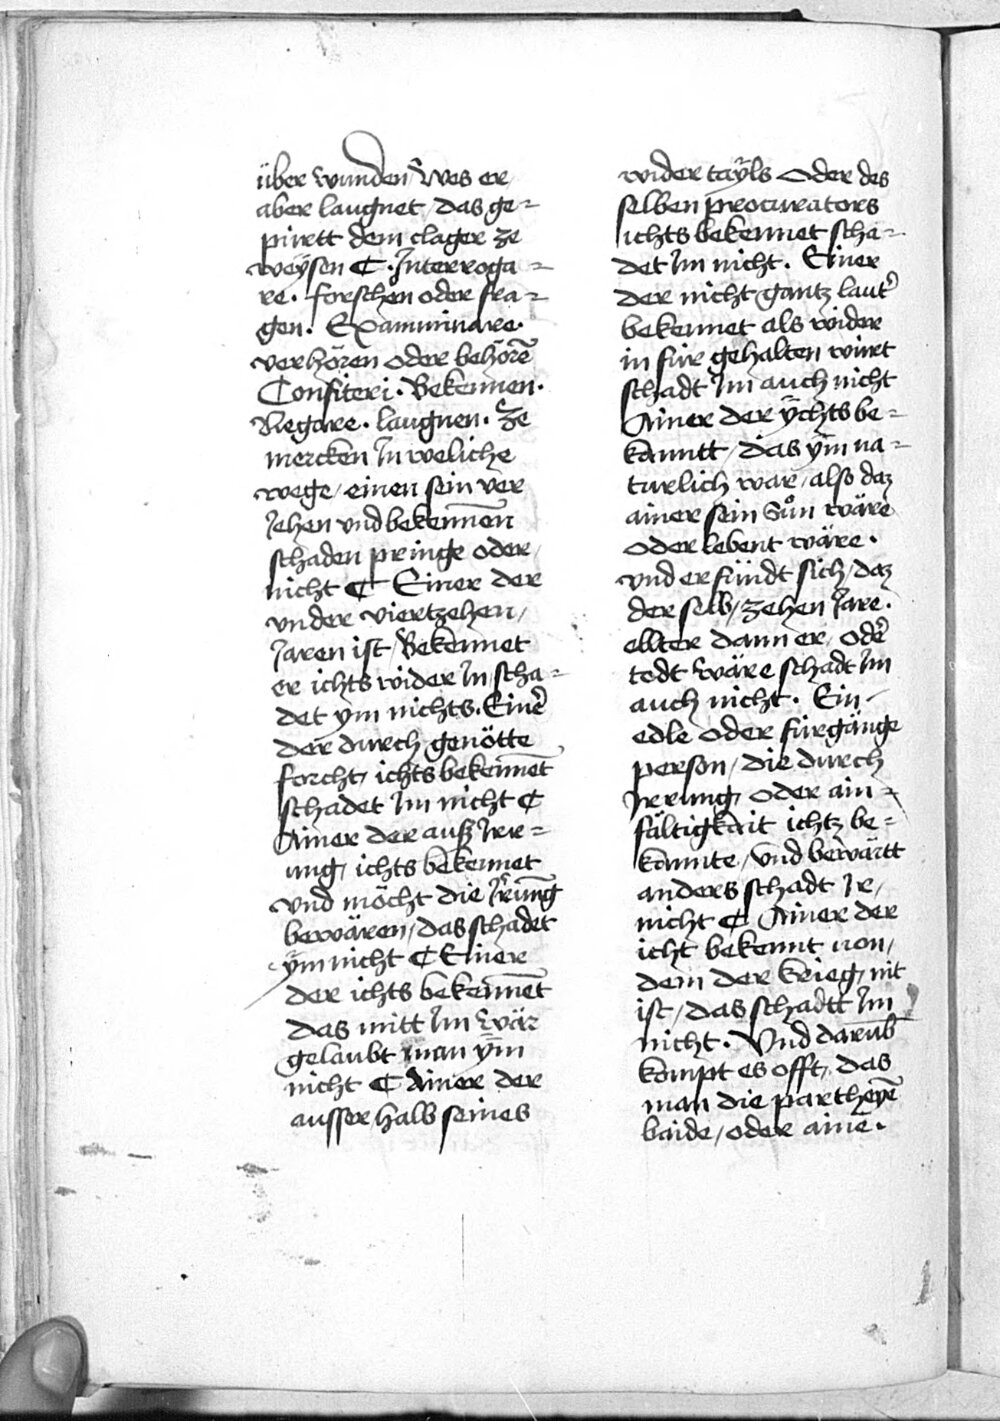 über wunden / Wes er /
aber laugnet / das ge=
pürtt dem clager ze
weÿsen ¶ · Interroga=
re · forschen oder fra=
gen · Examminare ·
verhören oder behörē
Confiteri · Bekennen ·
Negare · laugnen · Ze
mercken In weliche
wege / einen sein ver
Jehen vnd bekennen̄
schaden pringe oder /
nicht ¶ Einer der
vnder viertzehen /
Jaren ist / Bekennet
er ichts wider In / scha=
det ym nichts · Einer̄
der durch genötte
forcht / ichts bekennet̄
schadet Im nicht ¶
Ainer der auß Irr=
ung / ichts bekennet
vnd möcht die Irrunḡ
bewären / das schadet
ÿm nicht ¶ Einer
der ichts bekennet̄
das mitt Im wär
gelaubt man ÿm
nicht ¶ Ainer der
ausser halb seines
wider taÿls oder des
selben procurators
ichts bekennet scha=
det Im nicht · Einer
der nicht gantz laut̄
bekennet als wider
in für gehalten wirt
schadt Im auch nicht
Ainer der ÿchts be=
kanntt / das ym na=
turlich war / also daz
ainer sein Sůn wäre
oder lebent wäre ·
vnd erfündt sich / daz
der selb / zehen Jare ·
ellter dann er / odē
todt wäre schadt Im
auch nicht · Ein
edle oder fürgänge
person / die durch
Irrung / oder ain=
fältigkait ichtz be=
kannte / vnd bewärtt
anders schadt Ir /
nicht ¶ Ainer der
icht bekennt von /
dem der krieg / nit
ist / das schadtt Im
nicht · Vnd darub̄
kompt es offt / das
man die partheyē
baide / oder ainē ·